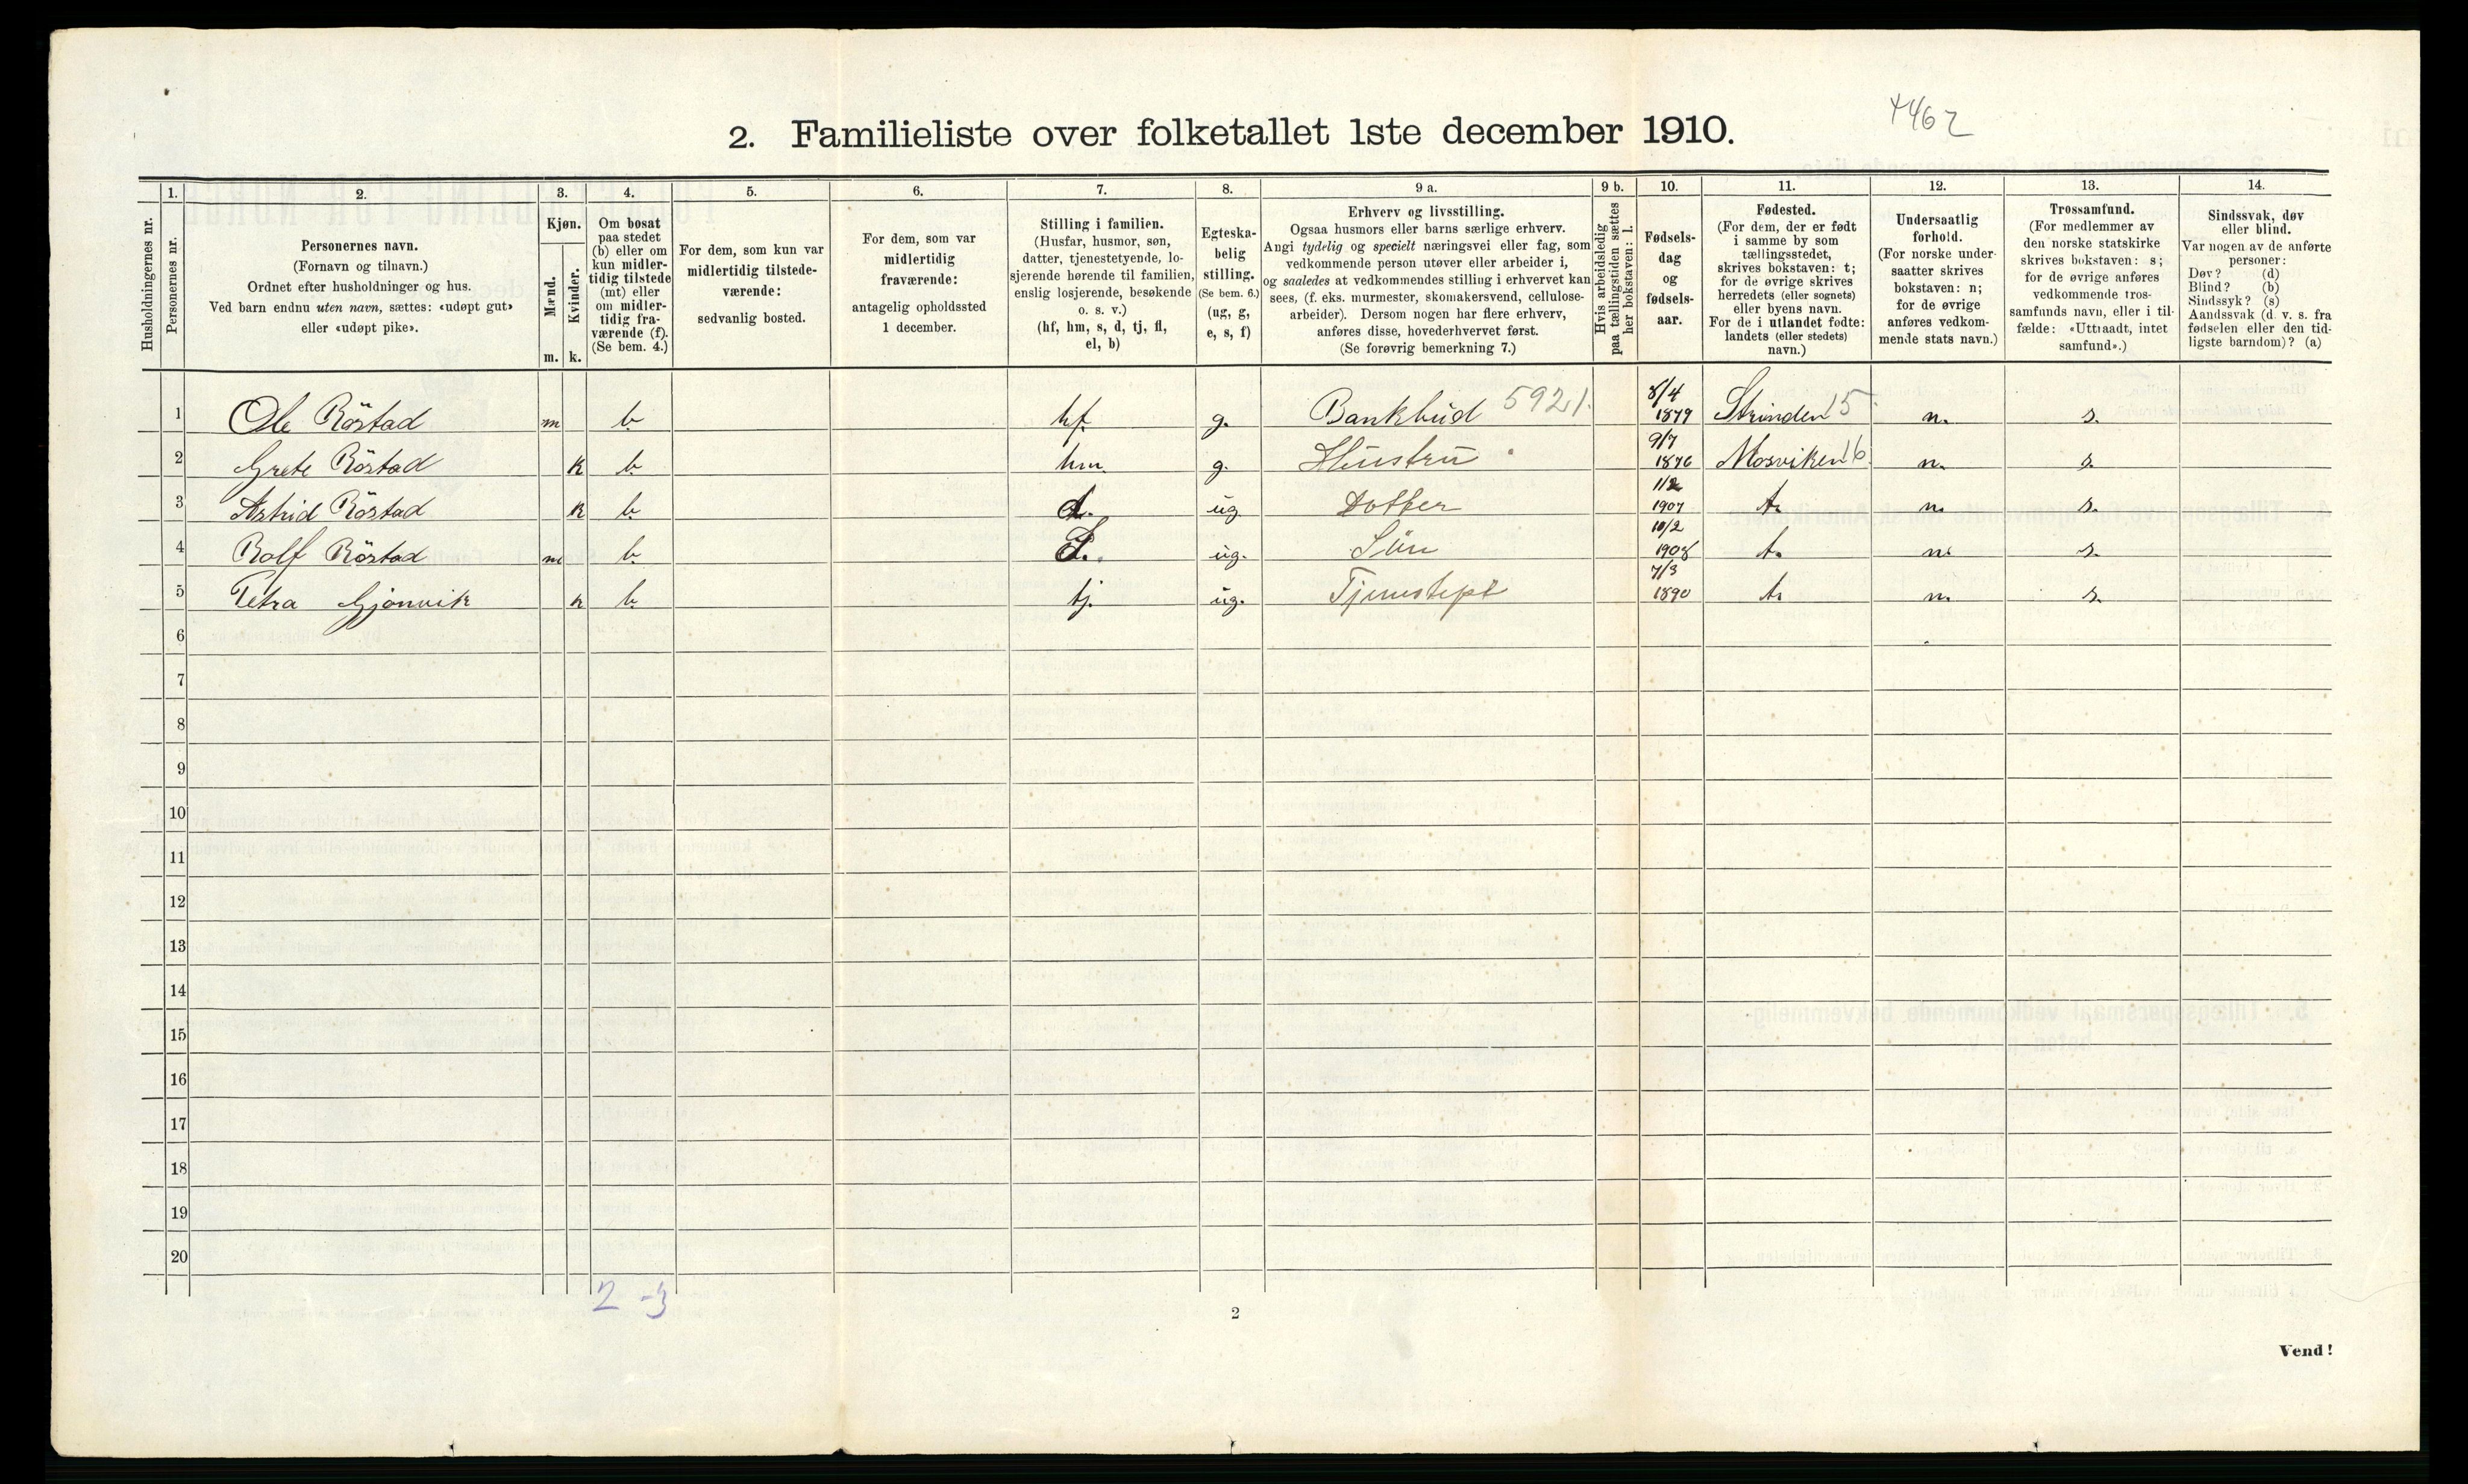 4462
2. Familieliste over folketallet 1ste december 1910.
Husholdningernes nr.
1.
Personernes nr.
2.
Personernes navn.
(Fornavn og tilnavn.)
Ordnet efter husholdninger og hus.
Ved barn endnu uten navn, sættes: «udøpt gut»
eller «udøpt pike».
3.
Kjøn.
Mænd.
Kvinder.
m. k.
4.
Om bosat
paa stedet
(b) eller om
kun midler-
tidig tilstede
(mt) eller
om midler-
tidig fra-
værende (f).
(Se bem. 4.)
5.
For dem, som kun var
midlertidig tilstede-
værende:
sedvanlig bosted.
6.
For dem, som var
midlertidig
fraværende:
antagelig opholdssted
1 december.
7.
Stilling i familien.
(Husfar, husmor, søn,
datter, tjenestetyende, lo-
sjerende hørende til familien,
enslig losjerende, besøkende
o. s. v.)
(hf, hm, s, d, tj, fl,
el, b)
8.
Egteska-
belig
stilling.
(Se bem. 6.)
(ug, g,
e, s, f)
9 a.
Erhverv og livsstilling.
Ogsaa husmors eller barns særlige erhverv.
Angi tydelig og specielt næringsvei eller fag, som
vedkommende person utøver eller arbeider i,
og saaledes at vedkommendes stilling i erhvervet kan
sees, (f. eks. murmester, skomakersvend, cellulose-
arbeider). Dersom nogen har flere erhverv,
anføres disse, hovederhvervet først.
(Se forøvrig bemerkning 7.)
9 b.
Hvis arbeidsledig
paa tællingstiden sættes
her bokstaven: l.
10.
Fødsels-
dag
og
fødsels-
aar.
11.
Fødested.
(For dem, der er født
i samme by som
tællingsstedet,
skrives bokstaven: t;
for de øvrige skrives
herredets (eller sognets)
eller byens navn.
For de i utlandet fødte:
landets (eller stedets)
navn.)
12.
Undersaatlig
forhold.
(For norske under-
saatter skrives
bokstaven: n;
for de øvrige
anføres vedkom-
mende stats navn.)
13.
Trossamfund.
(For medlemmer av
den norske statskirke
skrives bokstaven: s;
for de øvrige anføres
vedkommende tros-
samfunds navn, eller i til-
fælde: «Uttraadt, intet
samfund».)
14.
Sindssvak, døv
eller blind.
Var nogen av de anførte
personer:
Døv? (d)
Blind? (b)
Sindssyk? (s)
Aandssvak (d. v. s. fra
fødselen eller den tid-
ligste barndom)? (a)
1 Ole Röstad m b. hf. g. Bankbud 5921. 8/4 1879 Strinden 15 n. s.
2 Grete Röstad k b. hm. g. Hustru 9/7 1876 Mosviken 16 n. s.
3 Astrid Röstad k b. d. ug Dotter 1/2 1907 t. n. s.
4 Rolf Röstad m b. ug. Sün 10/2 1908 t. n. s.
5 Petra Gjönvik k b. tj. ug. 7/3 1890 t. n. s.
6
7
8
9
10
11
12
13
14
15
16
17
18
19
20
2 -3
2
Vend!